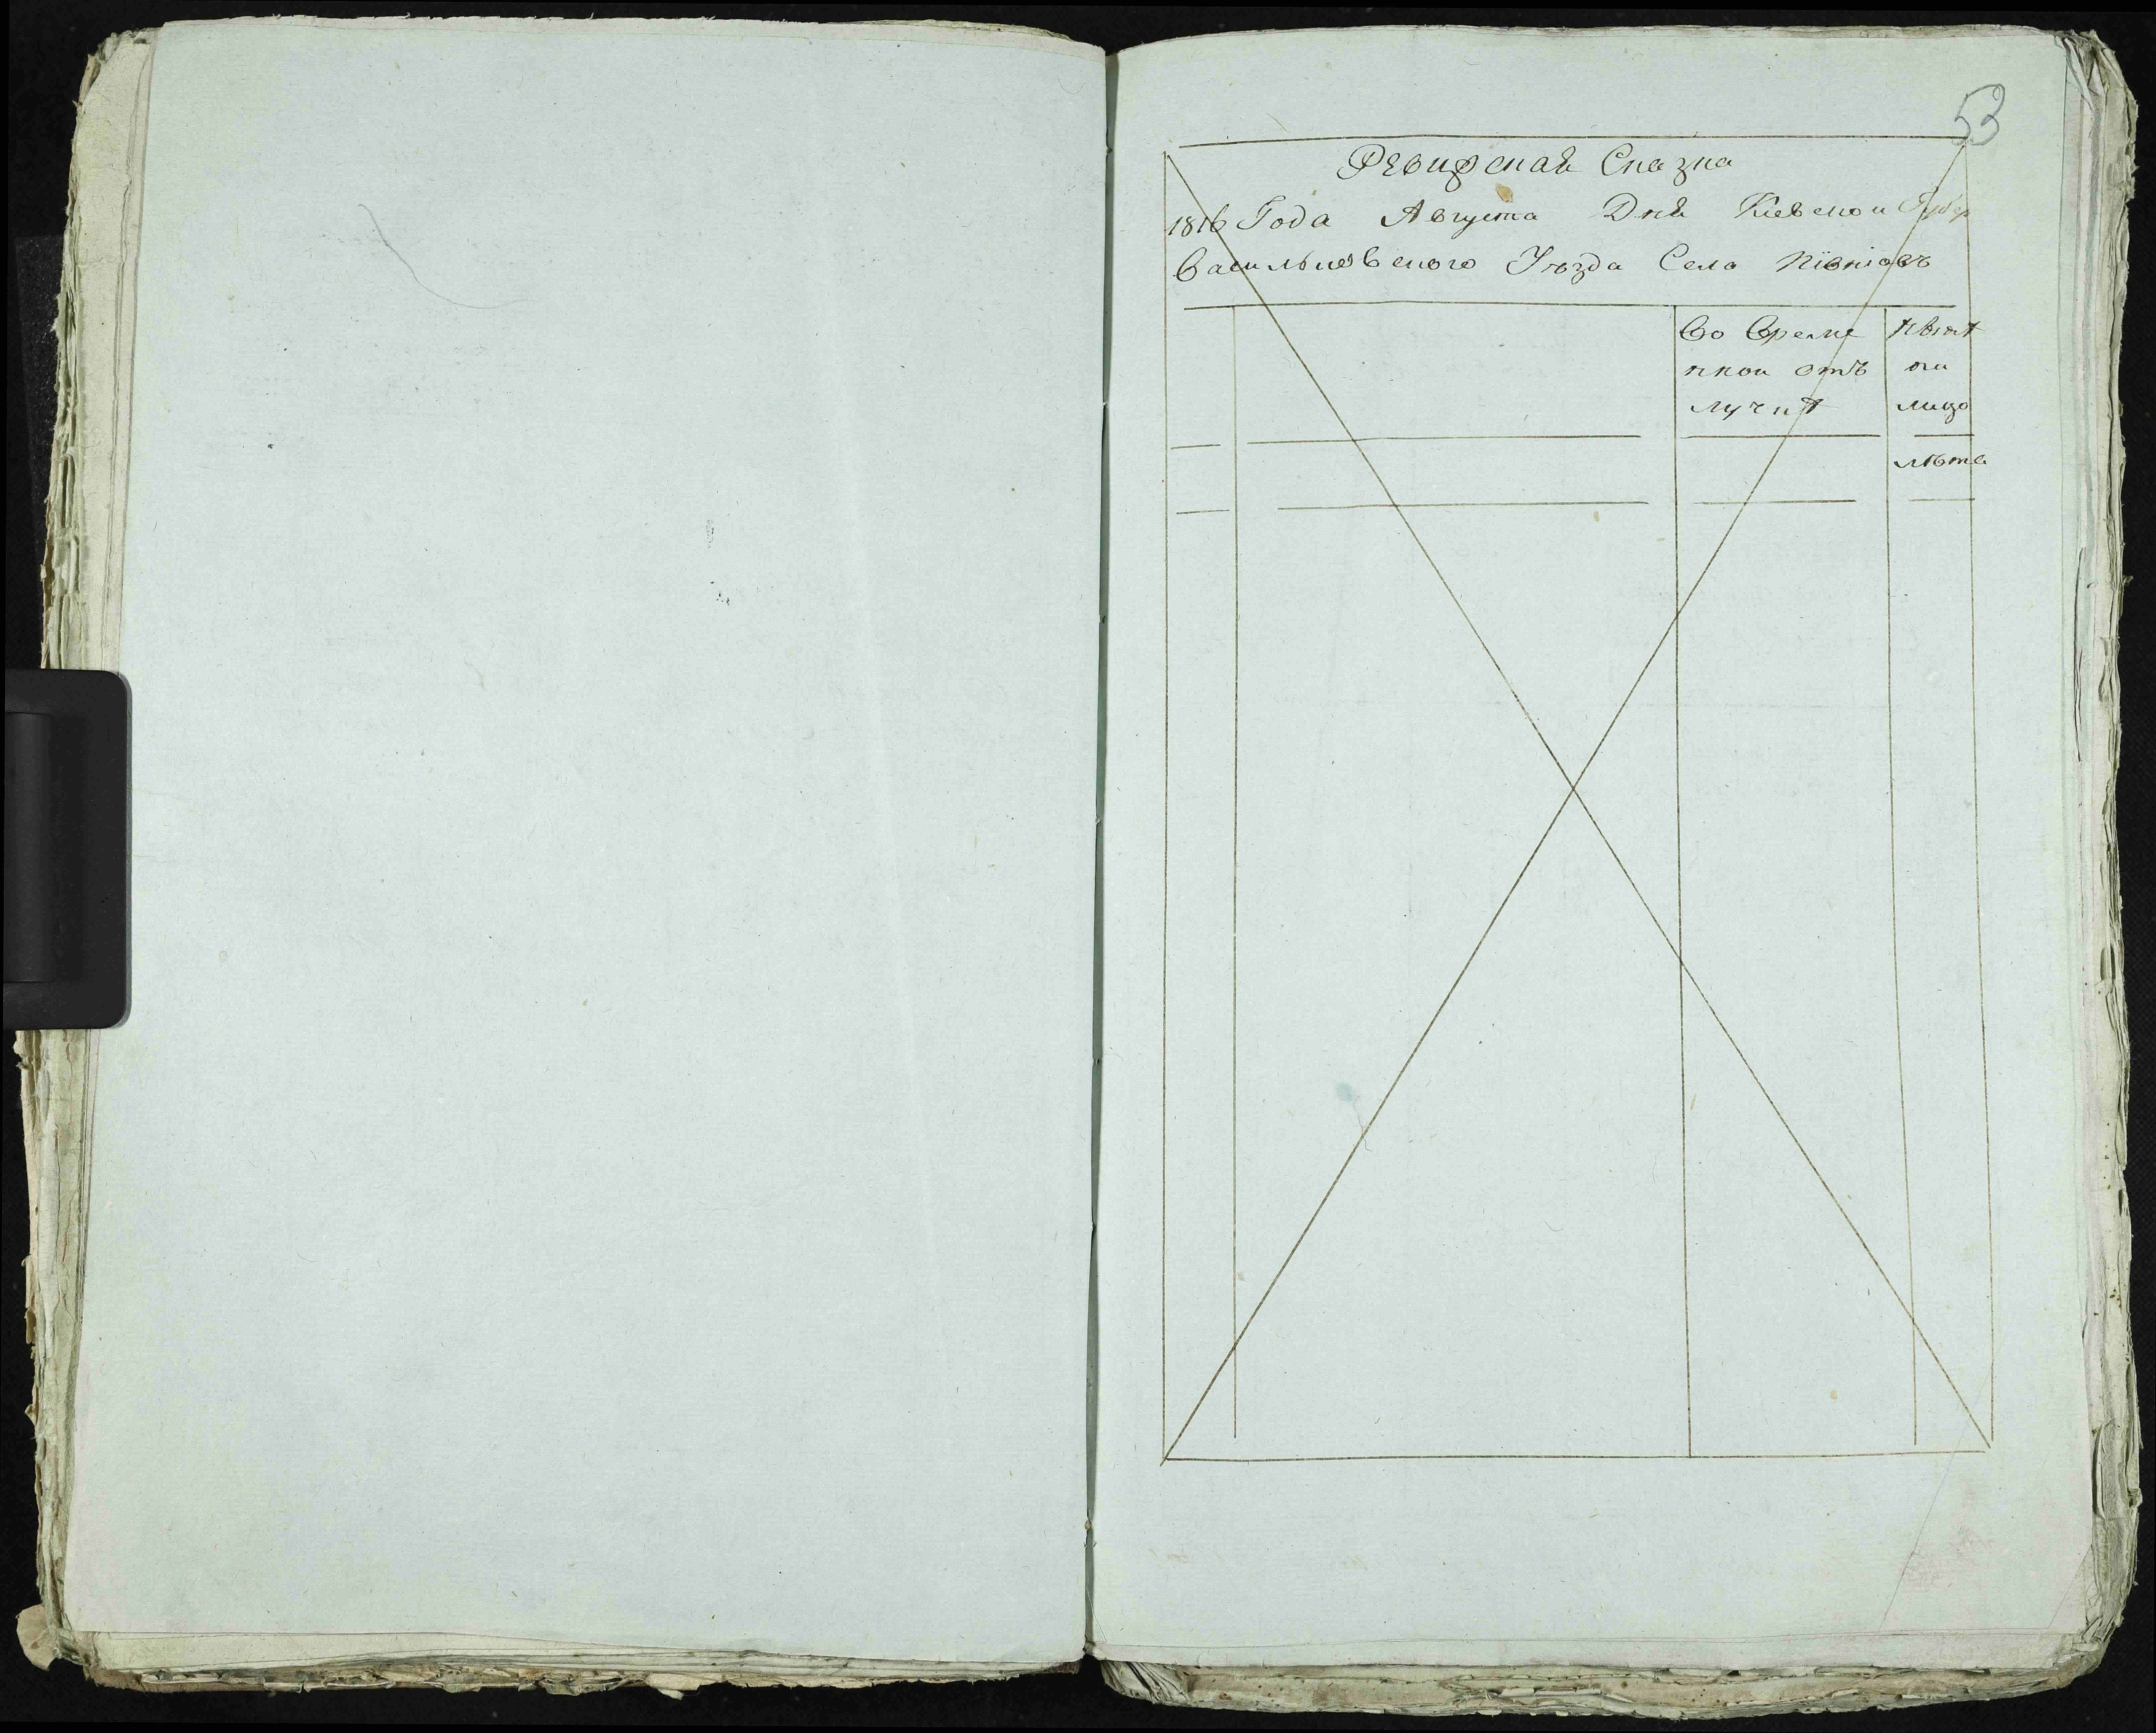 53
Ревизская Сказка
1816 Года Августа Дня Киевской Губер
Васильковского Уѣзда Села Пѣвнiовъ
Во Време
нной отъ
лучкѣ
нынѣ
на
лицо
лѣта